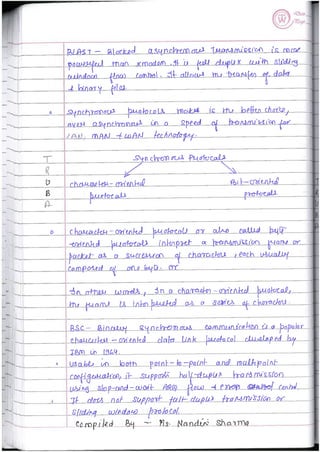 BLAST - Blocked asynchronous transmission is more
powerful than xmodem. It is full duplex with sliding
window flow control. It allows the transfer of data
& binary files
Synchronous protocols makes is the better choice,
over asynchronous in a speed of transmission for
LAN, MAN & WAN technology.
Synchronous Protocols
character-oriented Bit-oriented
protocols protocols.
T
R
U
B
A
Character-oriented protocols or also called byte
-oriented protocols interpret a transmission frame or
packet as a succession of characters, each usually
composed of one byte. or
In other words, In a character-oriented protocol,
the frame is interpreted as a series of characters.
BSC - Binary Synchronous communication is a popular
character-oriented data link protocol developed by
IBM in 1964.
Usable in both point-to-point and multipoint
configuration, it supports half-duplex transmission
using stop-and-wait ARQ flow & error control.
It does not support full-duplex transmission or
sliding window protocol.
Compiled By - Ms. Nandini Sharma